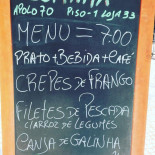 APOLO 70 PISO-1 LOJA 33
MENU = 7.00
PRATO+BEBIDA+CAFÉ
CREPES DE FRANGO
FILETES DE PESCADA
C/ARROZ DE LEGUMES
CANJA DE GALINHA